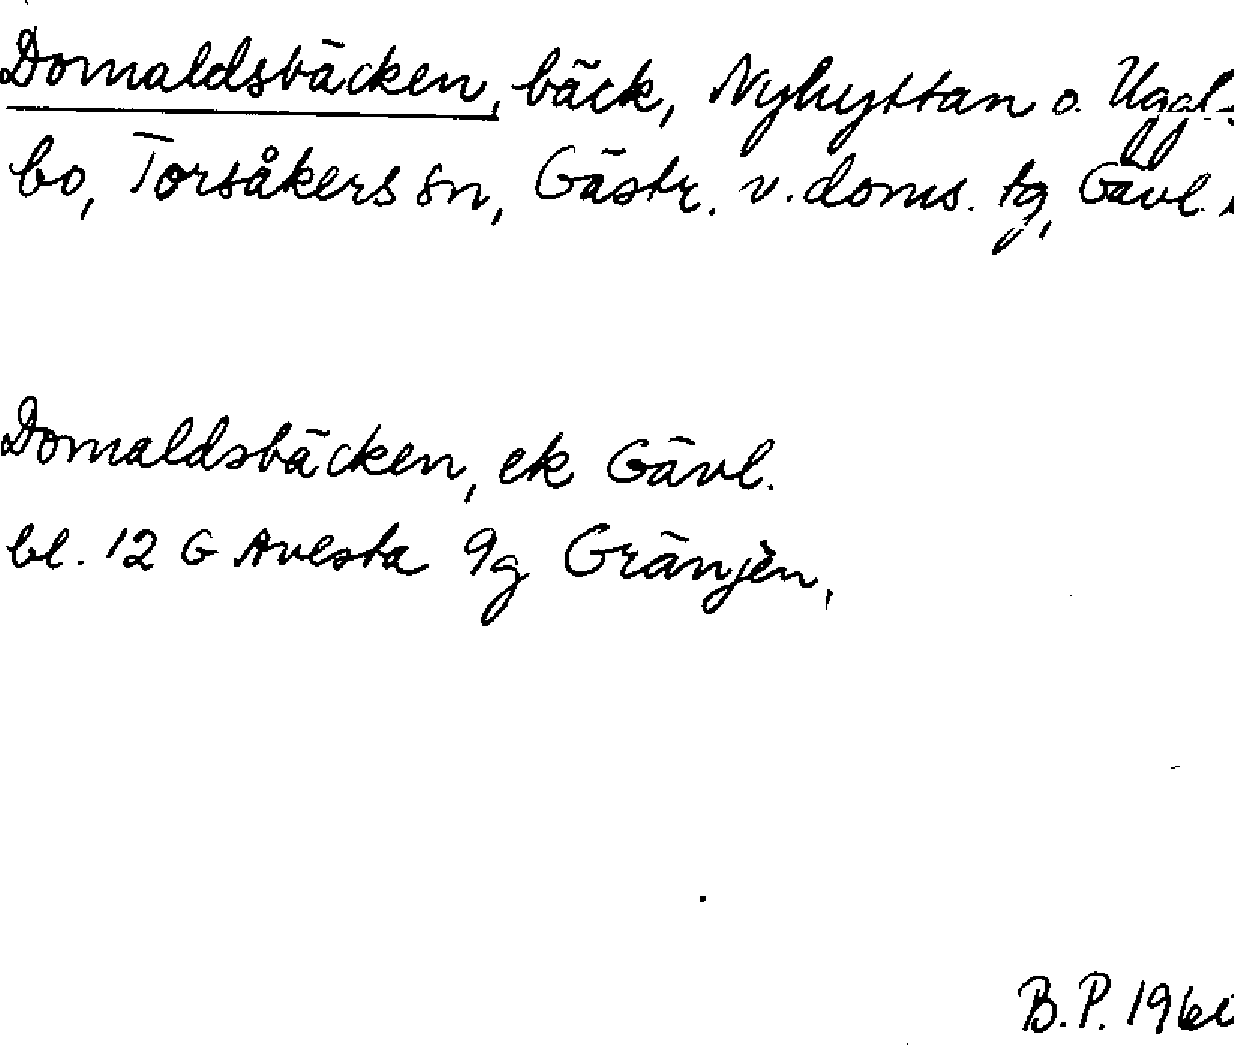 Domaldsbäcken, bäck, Nyhyttan o. Uggl-
bo, Torsåkers sn, Gästr. v. doms. tg, Gävl.
Domaldsbäcken, ek Gävl.
bl. 12 G Avesta 9g Gränjen,
B.P. 1960